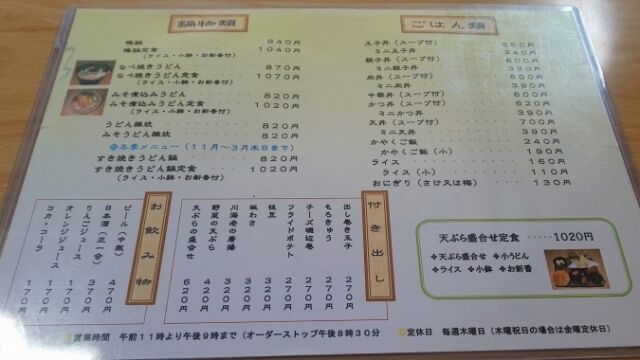 鍋物類
鴨鍋 840円
鴨鍋定食 1040円
(ライス・小鉢・お新香付)
なべ焼きうどん 870円
なべ焼きうどん定食 1070円
(ライス・小鉢・お新香付)
みそ煮込みうどん 820円
みそ煮込みうどん定食 1020円
(ライス・小鉢・お新香付)
うどん雑炊 820円
みそうどん雑炊 820円
冬季メニュー(11月〜3月末日まで)
すき焼きうどん鍋 820円
すき焼きうどん鍋定食 1020円
(ライス・小鉢・お新香付)
ごはん類
玉子丼(スープ付) 550円
ミニ玉子丼 340円
親子丼(スープ付) 600円
ミニ親子丼 390円
肉丼(スープ付) 600円
ミニ肉丼 390円
中華丼(スープ付) 600円
かつ丼(スープ付) 620円
ミニかつ丼 390円
天丼(スープ付) 700円
ミニ天丼 390円
かやくご飯 240円
かやくご飯(小) 190円
ライス 160円
ライス(小) 110円
おにぎり(さけ又は梅) 130円
付き出し
出し巻き玉子 270円
もろきゅう 270円
チーズ磯辺巻 270円
フライドポテト 270円
枝豆 270円
板わさ 270円
川海老の唐揚 320円
野菜の天ぷら 420円
天ぷらの盛合せ 620円
お飲み物
ビール(中瓶) 470円
日本酒(正一合) 370円
りんごジュース 170円
オレンジジュース 170円
コカ・コーラ 170円
天ぷら盛合せ定食 ‥‥‥1020円
✤天ぷら盛合せ ✤小うどん
✤ライス ✤小鉢 ✤お新香
営業時間 午前11時より午後9時まで(オーダーストップ午後8時30分)
定休日 毎週木曜日(木曜祝日の場合は金曜定休日)